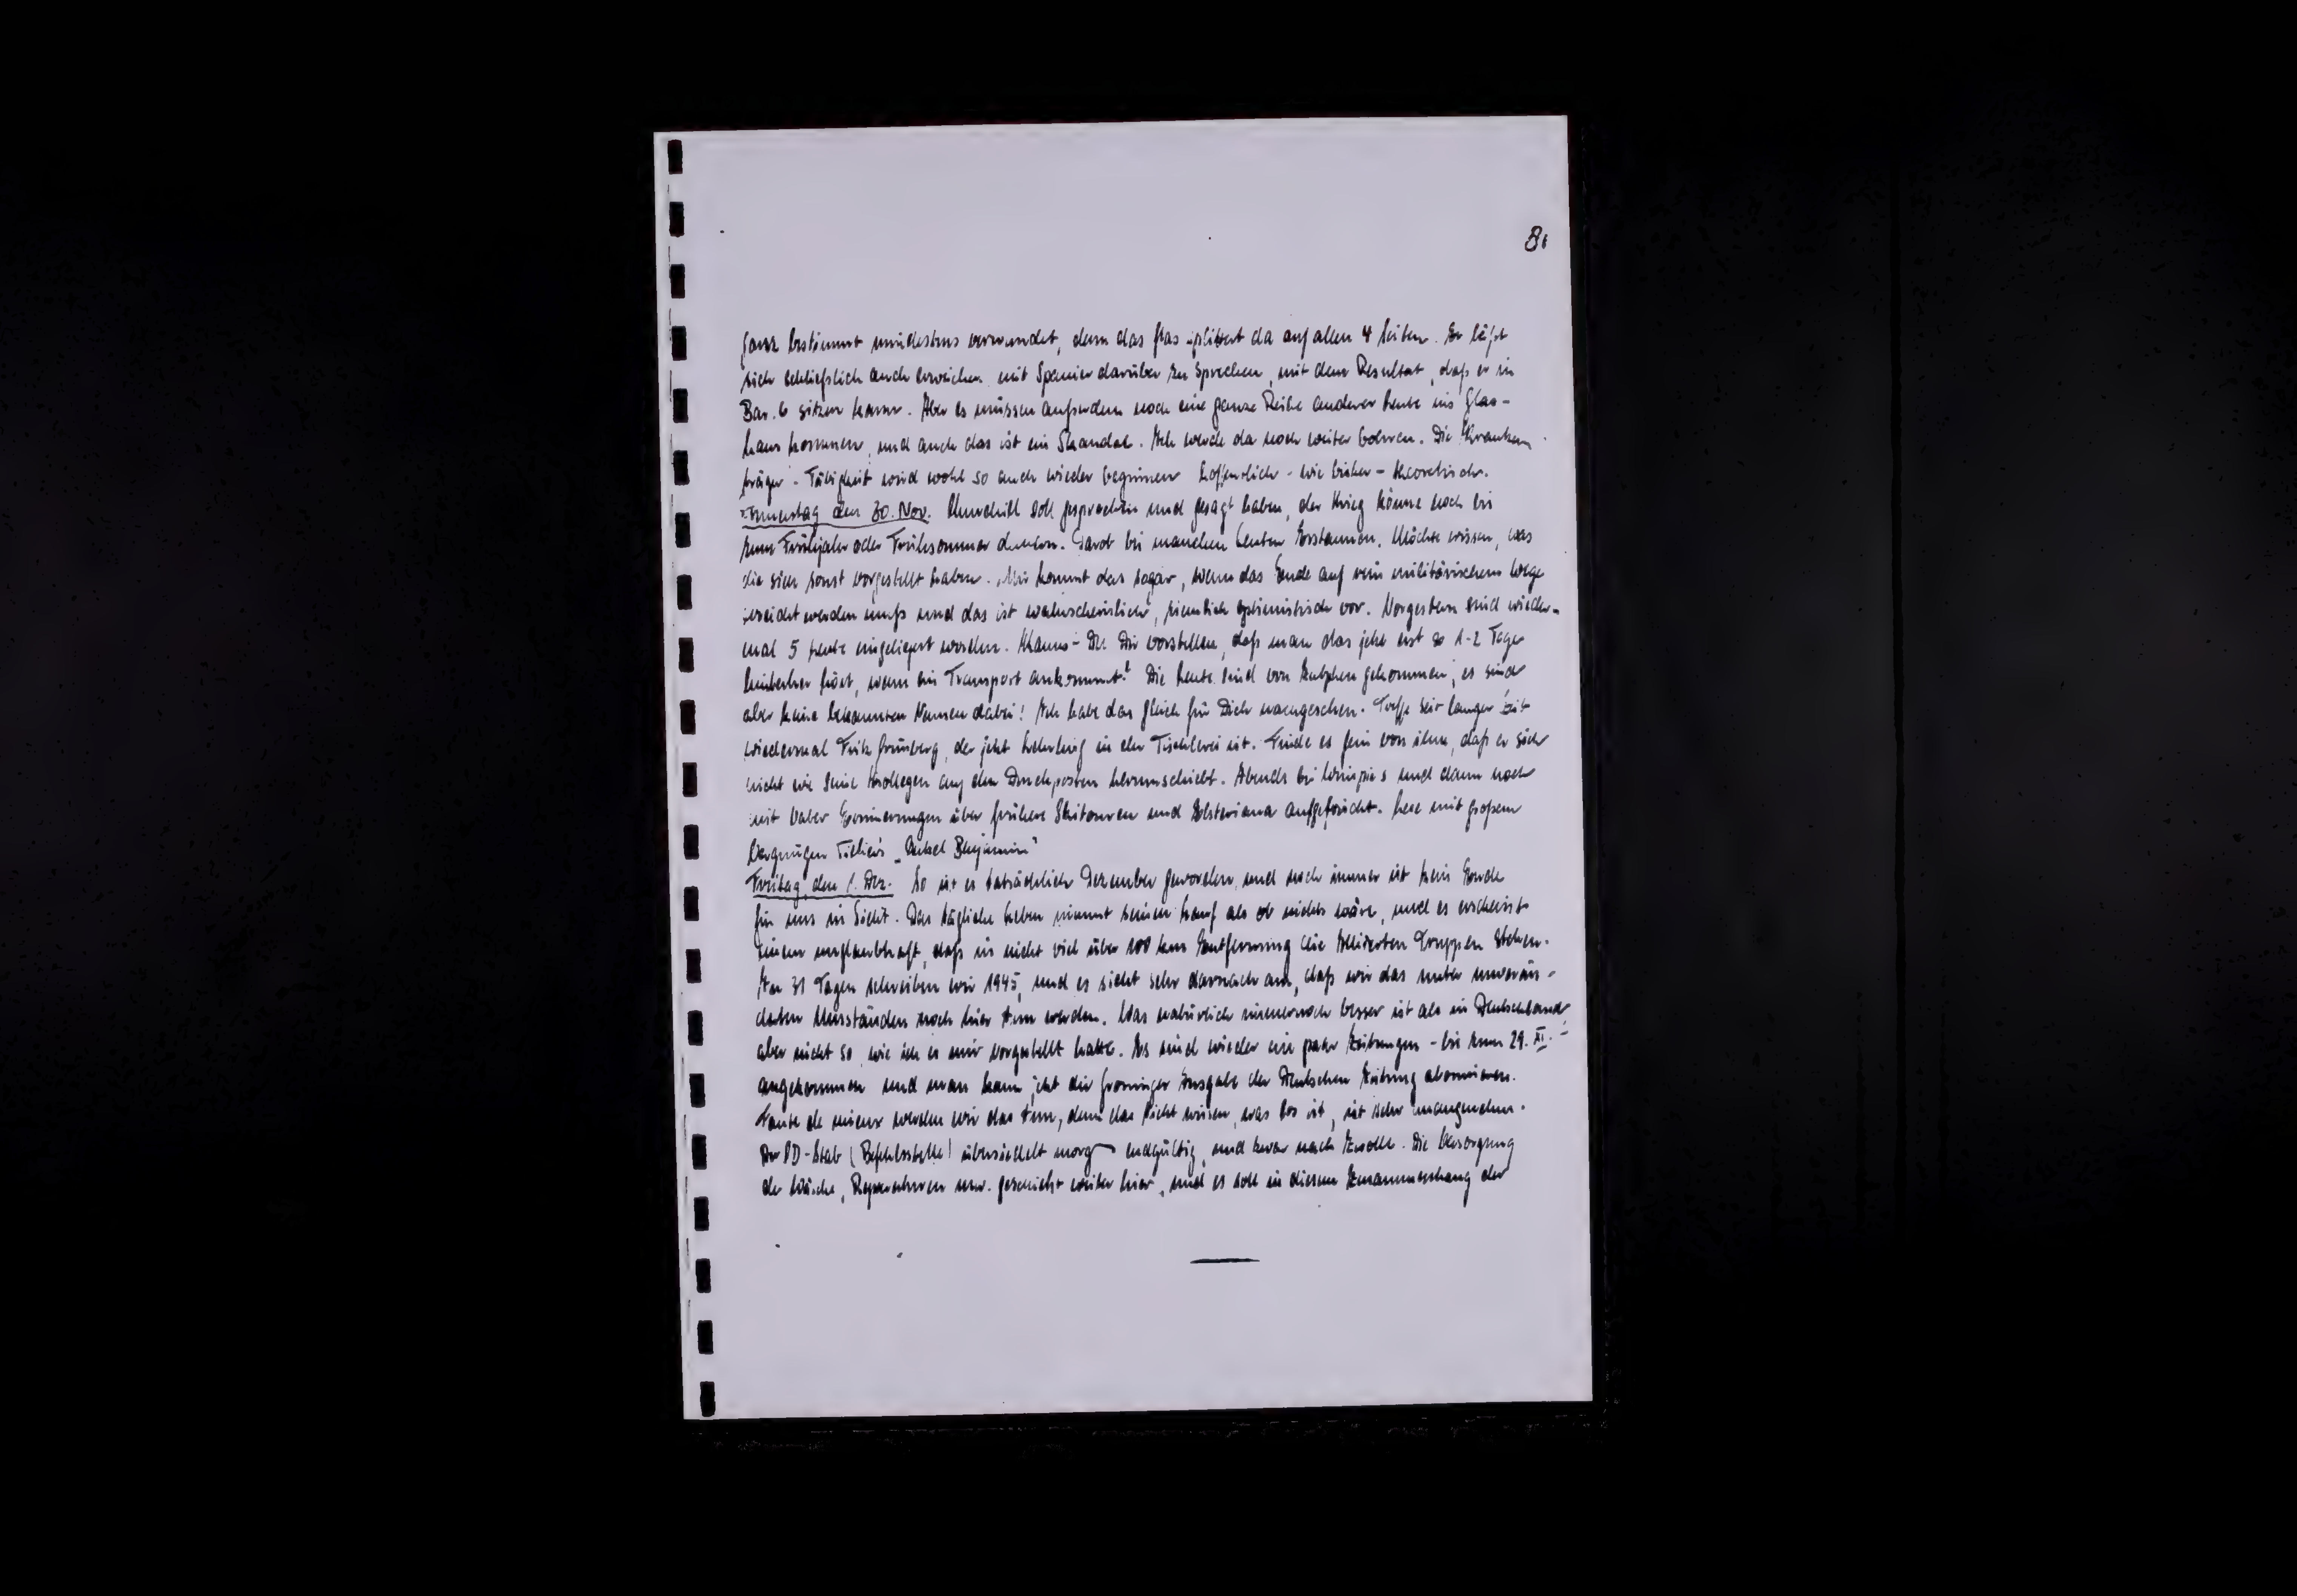 8.
ganz bestimmt mindestens verwundet, denn das Glas splittert da auf allen 4 Seiten. Er läßt
sich schließlich auch erweichen mit Spanier darüber zu sprechen, mit dem Resultat, daß er in
Bar. 6 sitzen kann. Aber es müssen außerdem noch eine ganze Reihe anderer Leute ins Glas-
haus kommen, und auch das ist ein Skandal. Ich werde da noch weiter bohren. Die Kranken
träger-Tätigkeit wird wohl so auch wieder beginnen hoffentlich - wie bisher - theoretisch.
Donnerstag den 30. Nov. Churchill soll gesprochen und gesagt haben, der Krieg könne noch bis
zum Frühjahr oder Frühsommer dauern. Darob bei manchen Leuten Erstaunen. Möchte wissen, was
die sich sonst vorgestellt haben. Mir kommt das sogar, wenn das Ende auf rein militärischem Wege
erreicht werden muß und das ist wahrscheinlich, ziemlich optimistisch vor. Vorgestern sind wieder-
mal 5 Leute eingeliefert worden. Kannst Du Dir vorstellen, daß man das jetzt erst so 1-2 Tage
hinterher hört, wenn ein Transport ankommt? Die Leute sind von Zutphen gekommen, es sind
aber keine bekannten Namen dabei! Ich habe das gleich für Dich nachgesehen. Treffe seit langer Zeit
wiedermal Fritz Grünberg, der jetzt Lehrling in der Tischlerei ist. Finde es fein von ihm, daß er sich
nicht wie seine Kollegen auf den Druckposten herumschiebt. Abends bei und dann noch
mit Erinnerungen über frühere Skitouren und aufgefrischt. Lese mit großem
Vergnügen Tillier's "Onkel Benjamin"
Freitag, den 1. Dez. So ist es tatsächlich Dezember geworden, und noch immer ist kein Ende
für uns in Sicht. Das tägliche Leben nimmt seinen Lauf als ob nichts wäre, und es erscheint
einem unglaubhaft, daß in nicht viel über 100 km Entfernung die Alliierten Truppen stehen.
In 31 Tagen schreiben wir 1945, und es sieht sehr darnach aus, daß wir das unter unverän-
derten Umständen noch hier tun werden. Was natürlich immernoch besser ist als in Deutschland,
aber nicht so, wie ich es mir vorgestellt hatte. Es sind wieder ein paar Zeitungen - bis zum 29. XI. -
angekommen und man kann jetzt die Groninger Ausgabe der Deutschen Zeitung abonnieren.
Faute de mieux werden wir das tun, denn das Nicht wissen, was los ist, ist sehr unangenehm.
Der BD-Stab (Befehlsstelle) übersiedelt morgen endgültig, und zwar nach Zwolle. Die Versorgung
der Wäsche, Reparaturen usw. geschieht weiter hier, und es soll in diesem Zusammenhang der